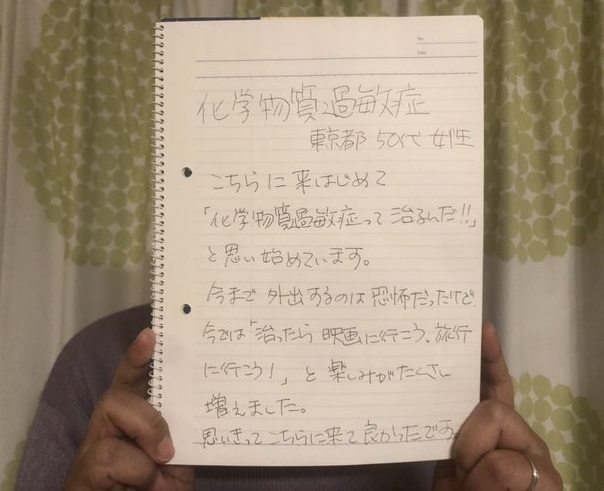 No.
Date
化学物質過敏症
東京都 50代 女性
こちらに来はじめて
「化学物質過敏症って治るんだ!!」
と思い始めています。
今まで外出するのは恐怖だったけど、
今では「治ったら映画に行こう、旅行
に行こう!」と楽しみがたくさん
増えました。
思いきってこちらに来て良かったです。